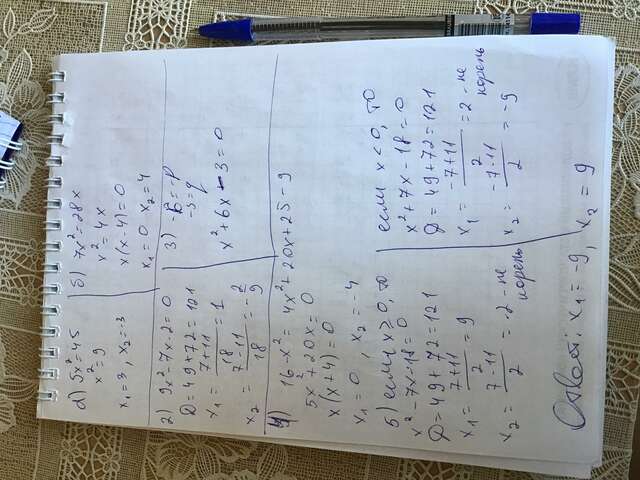 а) 5x² = 45
x² = 9
x₁ = 3, x₂ = -3
б) 7x² = 28x
x² = 4x
x(x-4) = 0
x₁ = 0 x₂ = 4
2) 9x² - 7x - 2 = 0
D = 49 + 72 = 121
x₁ = (7+11)/18 = 1
x₂ = (7-11)/18 = -2/9
3) -6 = -p
-3 = q
x² + 6x - 3 = 0
4) 16 - x² = 4x² + 20x + 25 - 9
5x² + 20x = 0
x(x+4) = 0
x₁ = 0, x₂ = -4
5) если x ≥ 0, то
x² - 7x - 18 = 0
D = 49 + 72 = 121
x₁ = (7+11)/2 = 9
x₂ = (7-11)/2 = -2 - не
корень
если x < 0, то
x² + 7x - 18 = 0
D = 49 + 72 = 121
x₁ = (-7+11)/2 = 2 - не
корень
x₂ = (-7-11)/2 = -9
Ответ: x₁ = -9, x₂ = 9